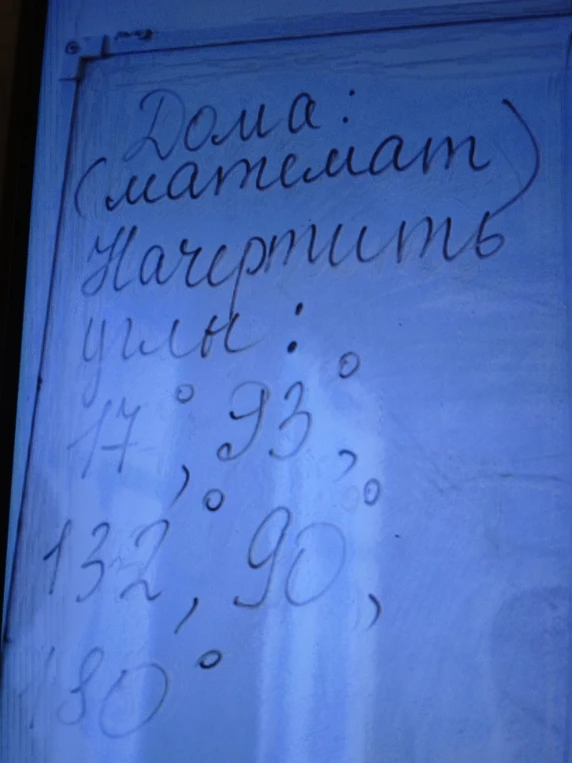 Дома:
(математ)
Начертить
углы:
17°, 93°,
132°, 90°,
180°